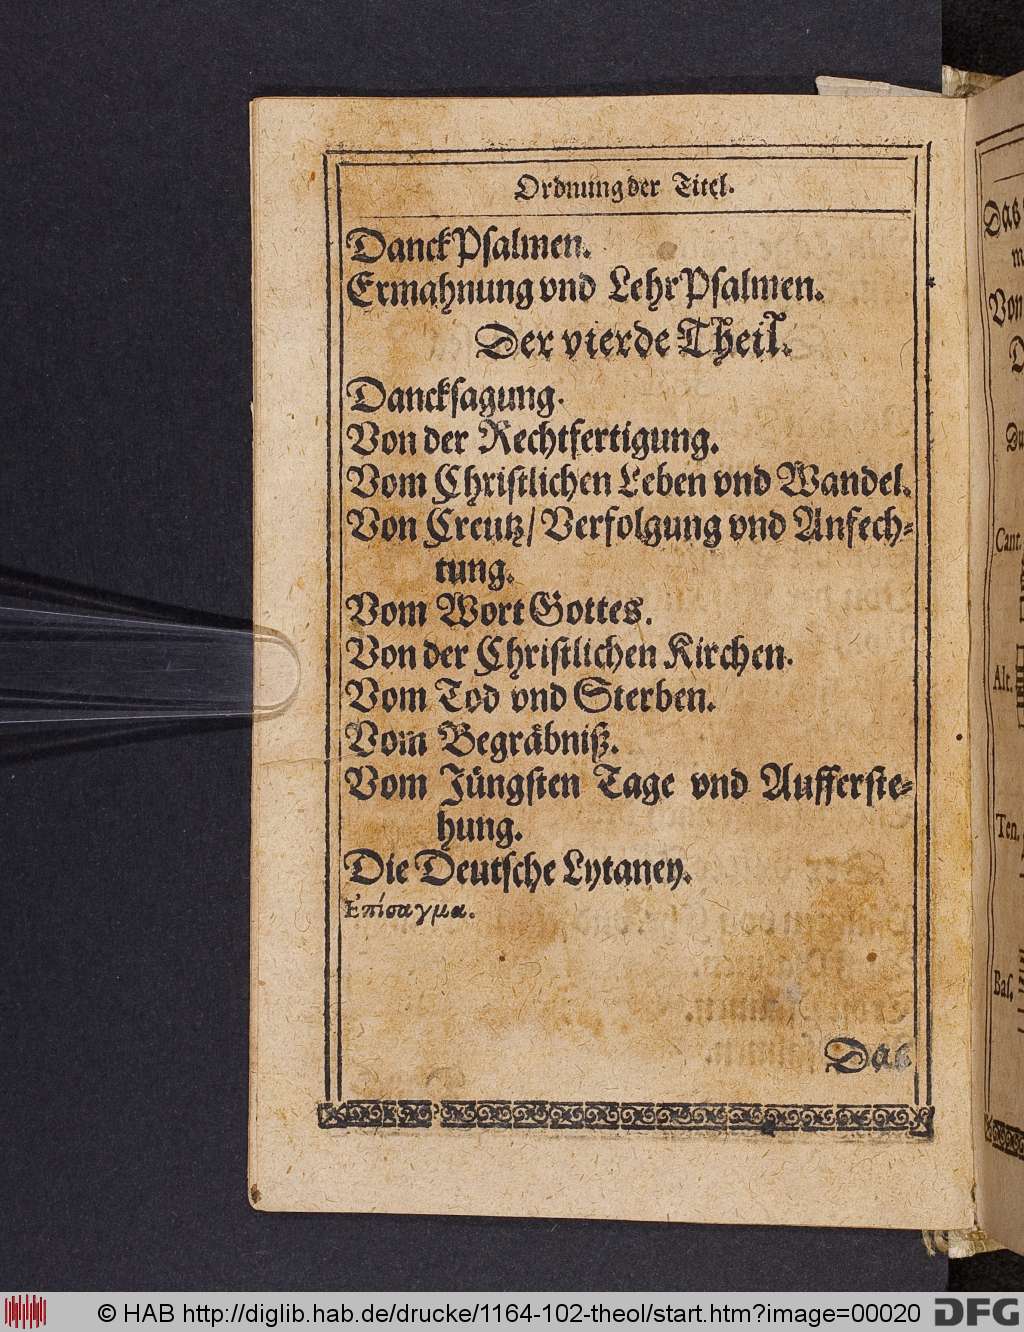 Ordnung der Titel.
DanckPsalmen.
Ermahnung vnd LehrPsalmen.
Der vierde Theil.
Dancksagung.
Von der Rechtfertigung.
Vom Christlichen Leben vnd Wandel.
Von Creutz/ Verfolgung vnd Anfech-
tung.
Vom Wort Gottes.
Von der Christlichen Kirchen.
Vom Tod vnd Sterben.
Vom Begräbniß.
Vom Jüngsten Tage vnd Aufferste-
hung.
Die Deutsche Lytaney.
Ἐπίσαγμα.
Das
Das
Von
Cant.
Alt.
Ten.
Bas.
© HAB http://diglib.hab.de/drucke/1164-102-theol/start.htm?image=00020
DFG